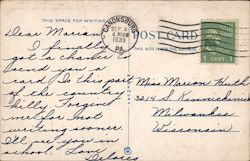 THIS SPACE FOR WRITING
POST CARD
CANONSBURG
SEP 4
1939
PA.
1 CENT
Dear Marion,
I finally
got a chance to
send you a
card. In this part
of the country
hilly. Forgive
me for not
writing sooner.
I'll see you in
school. Love,
Delores
Miss Marion
3214 S. Kinnickinnic
Milwaukee
Wisconsin